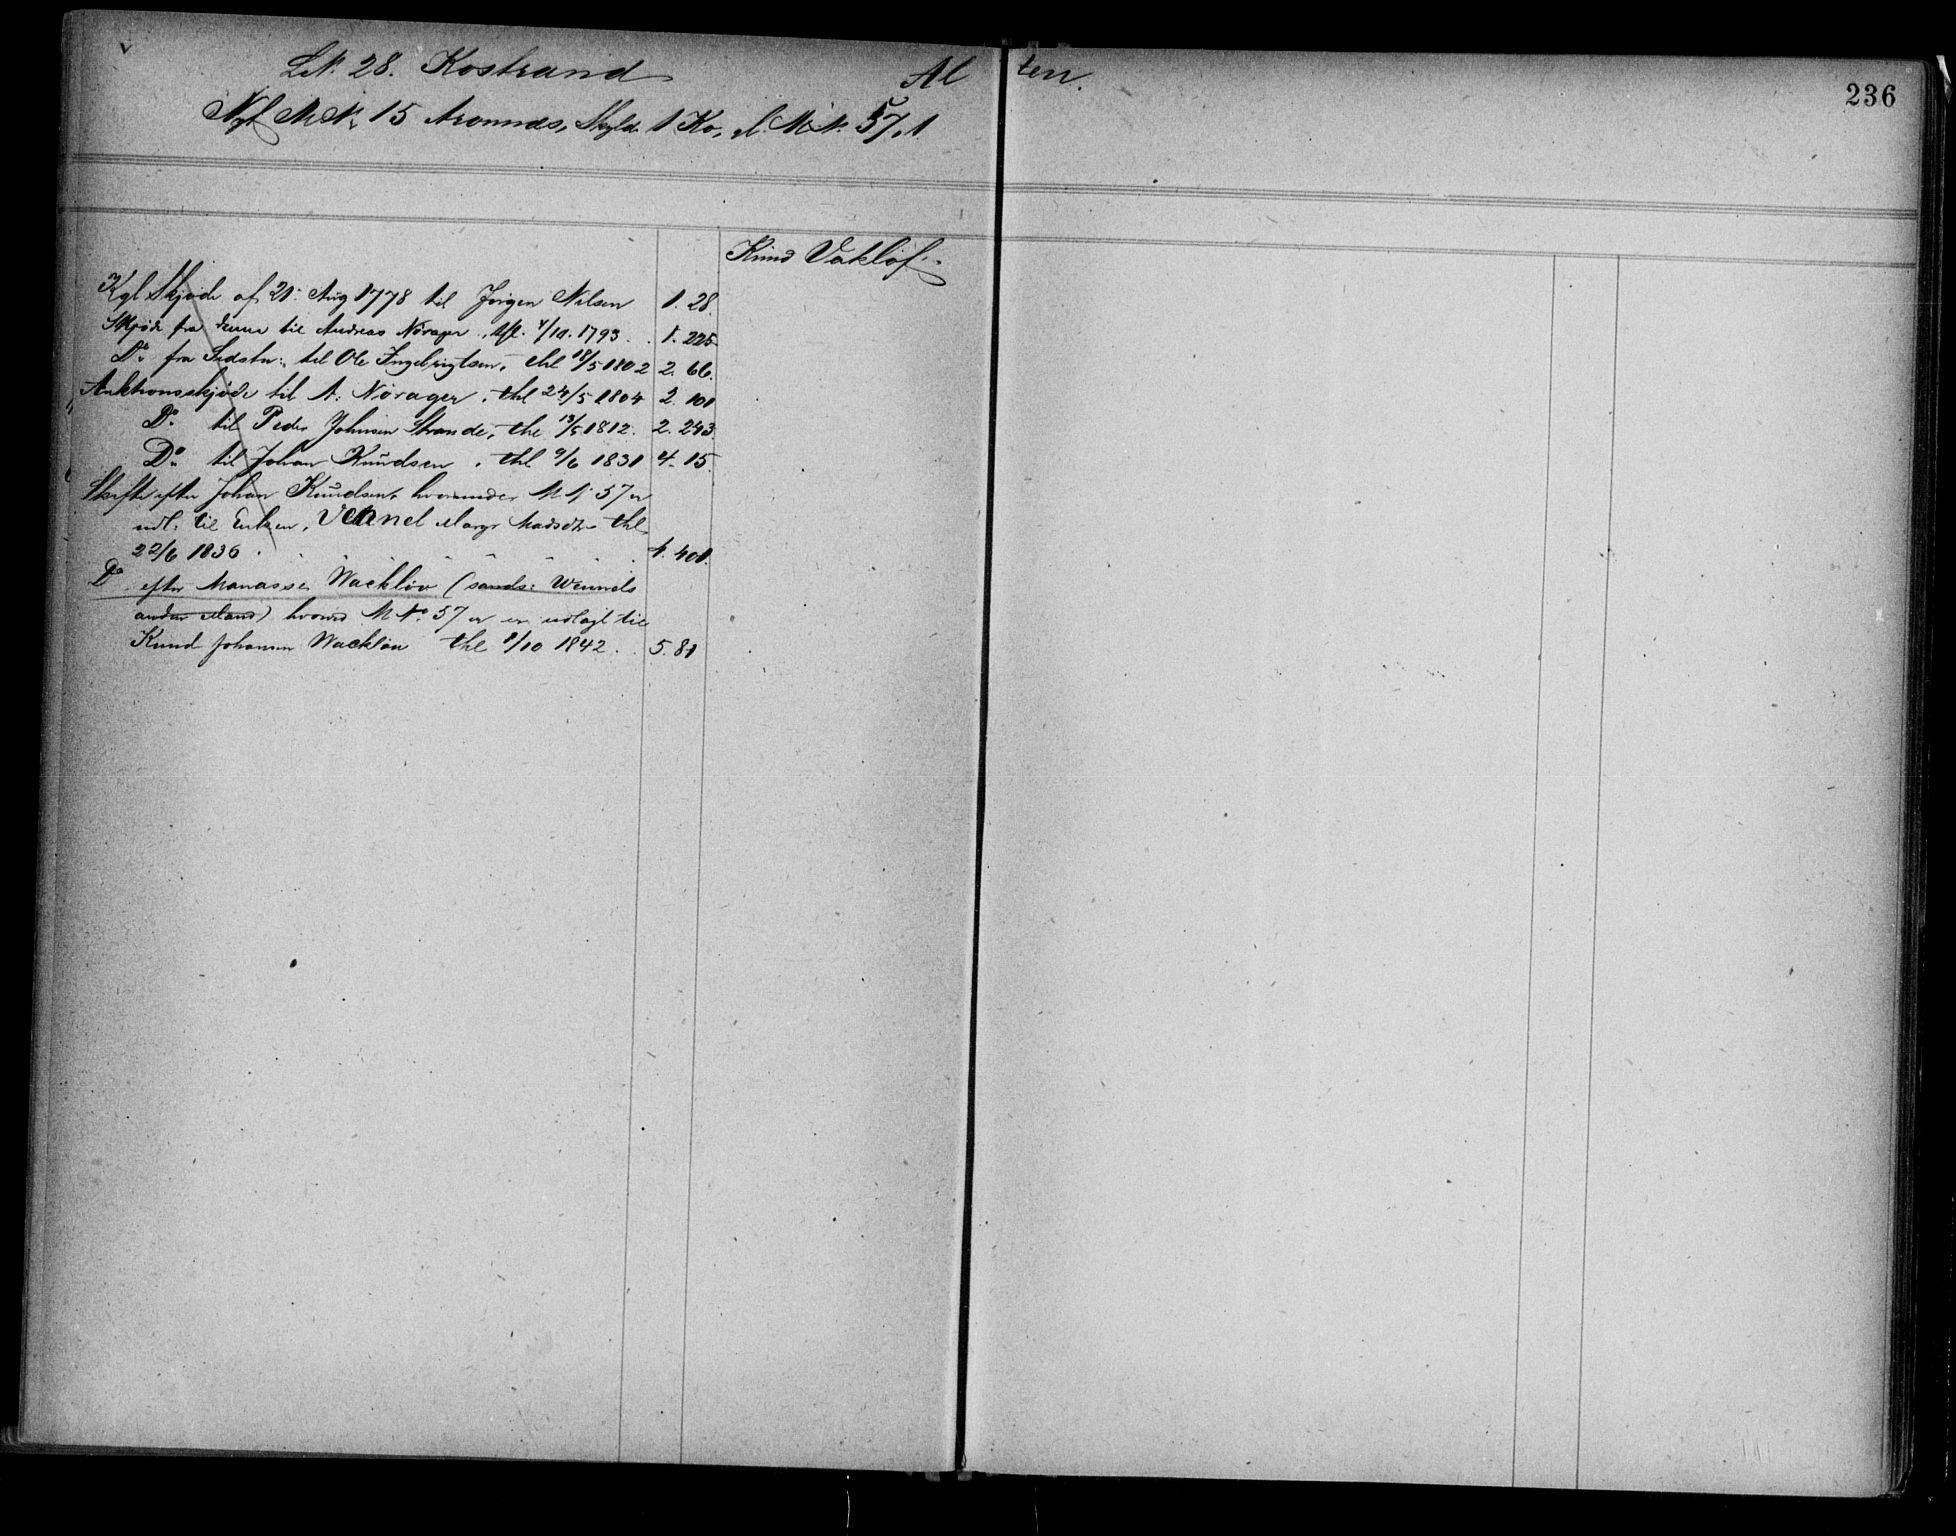 L.N. 28. Kostrand Al ten. 236
Nyt M.N. 15 Aronnæs, Skyld 1 Ko, gl. M.N. 57.1
Knud Vakløf.
Kgl Skjøde af 21. Aug 1778 til Jørgen Nilsen 1. 28.
Skjøde fra denne til Andreas Nørager, 4/10. 1793. 1. 225.
Do fra Sidstn: til Ole Ingebrigtsen, thl 18/5 1802 2. 66.
Auktionsskjøde til A. Nørager, thl 24/5 1804 2. 101
Do til Peder Johnsen Strande, thl 13/5 1812. 2. 243.
Do til Johan Knudsen, thl 9/6 1831 4. 15.
Skifte efter Johan Knudsen, hvorunder M N 57 er
udl. til Enken, Vennel Margr Madsdtr thl
22/6 1836 . 4. 401.
Do efter Manasse Wackløv (sands: Wennels
anden Mand) hvorved M No 57 er er udlagt til
Knud Johansen Wackløu thl 8/10 1842 . 5. 81